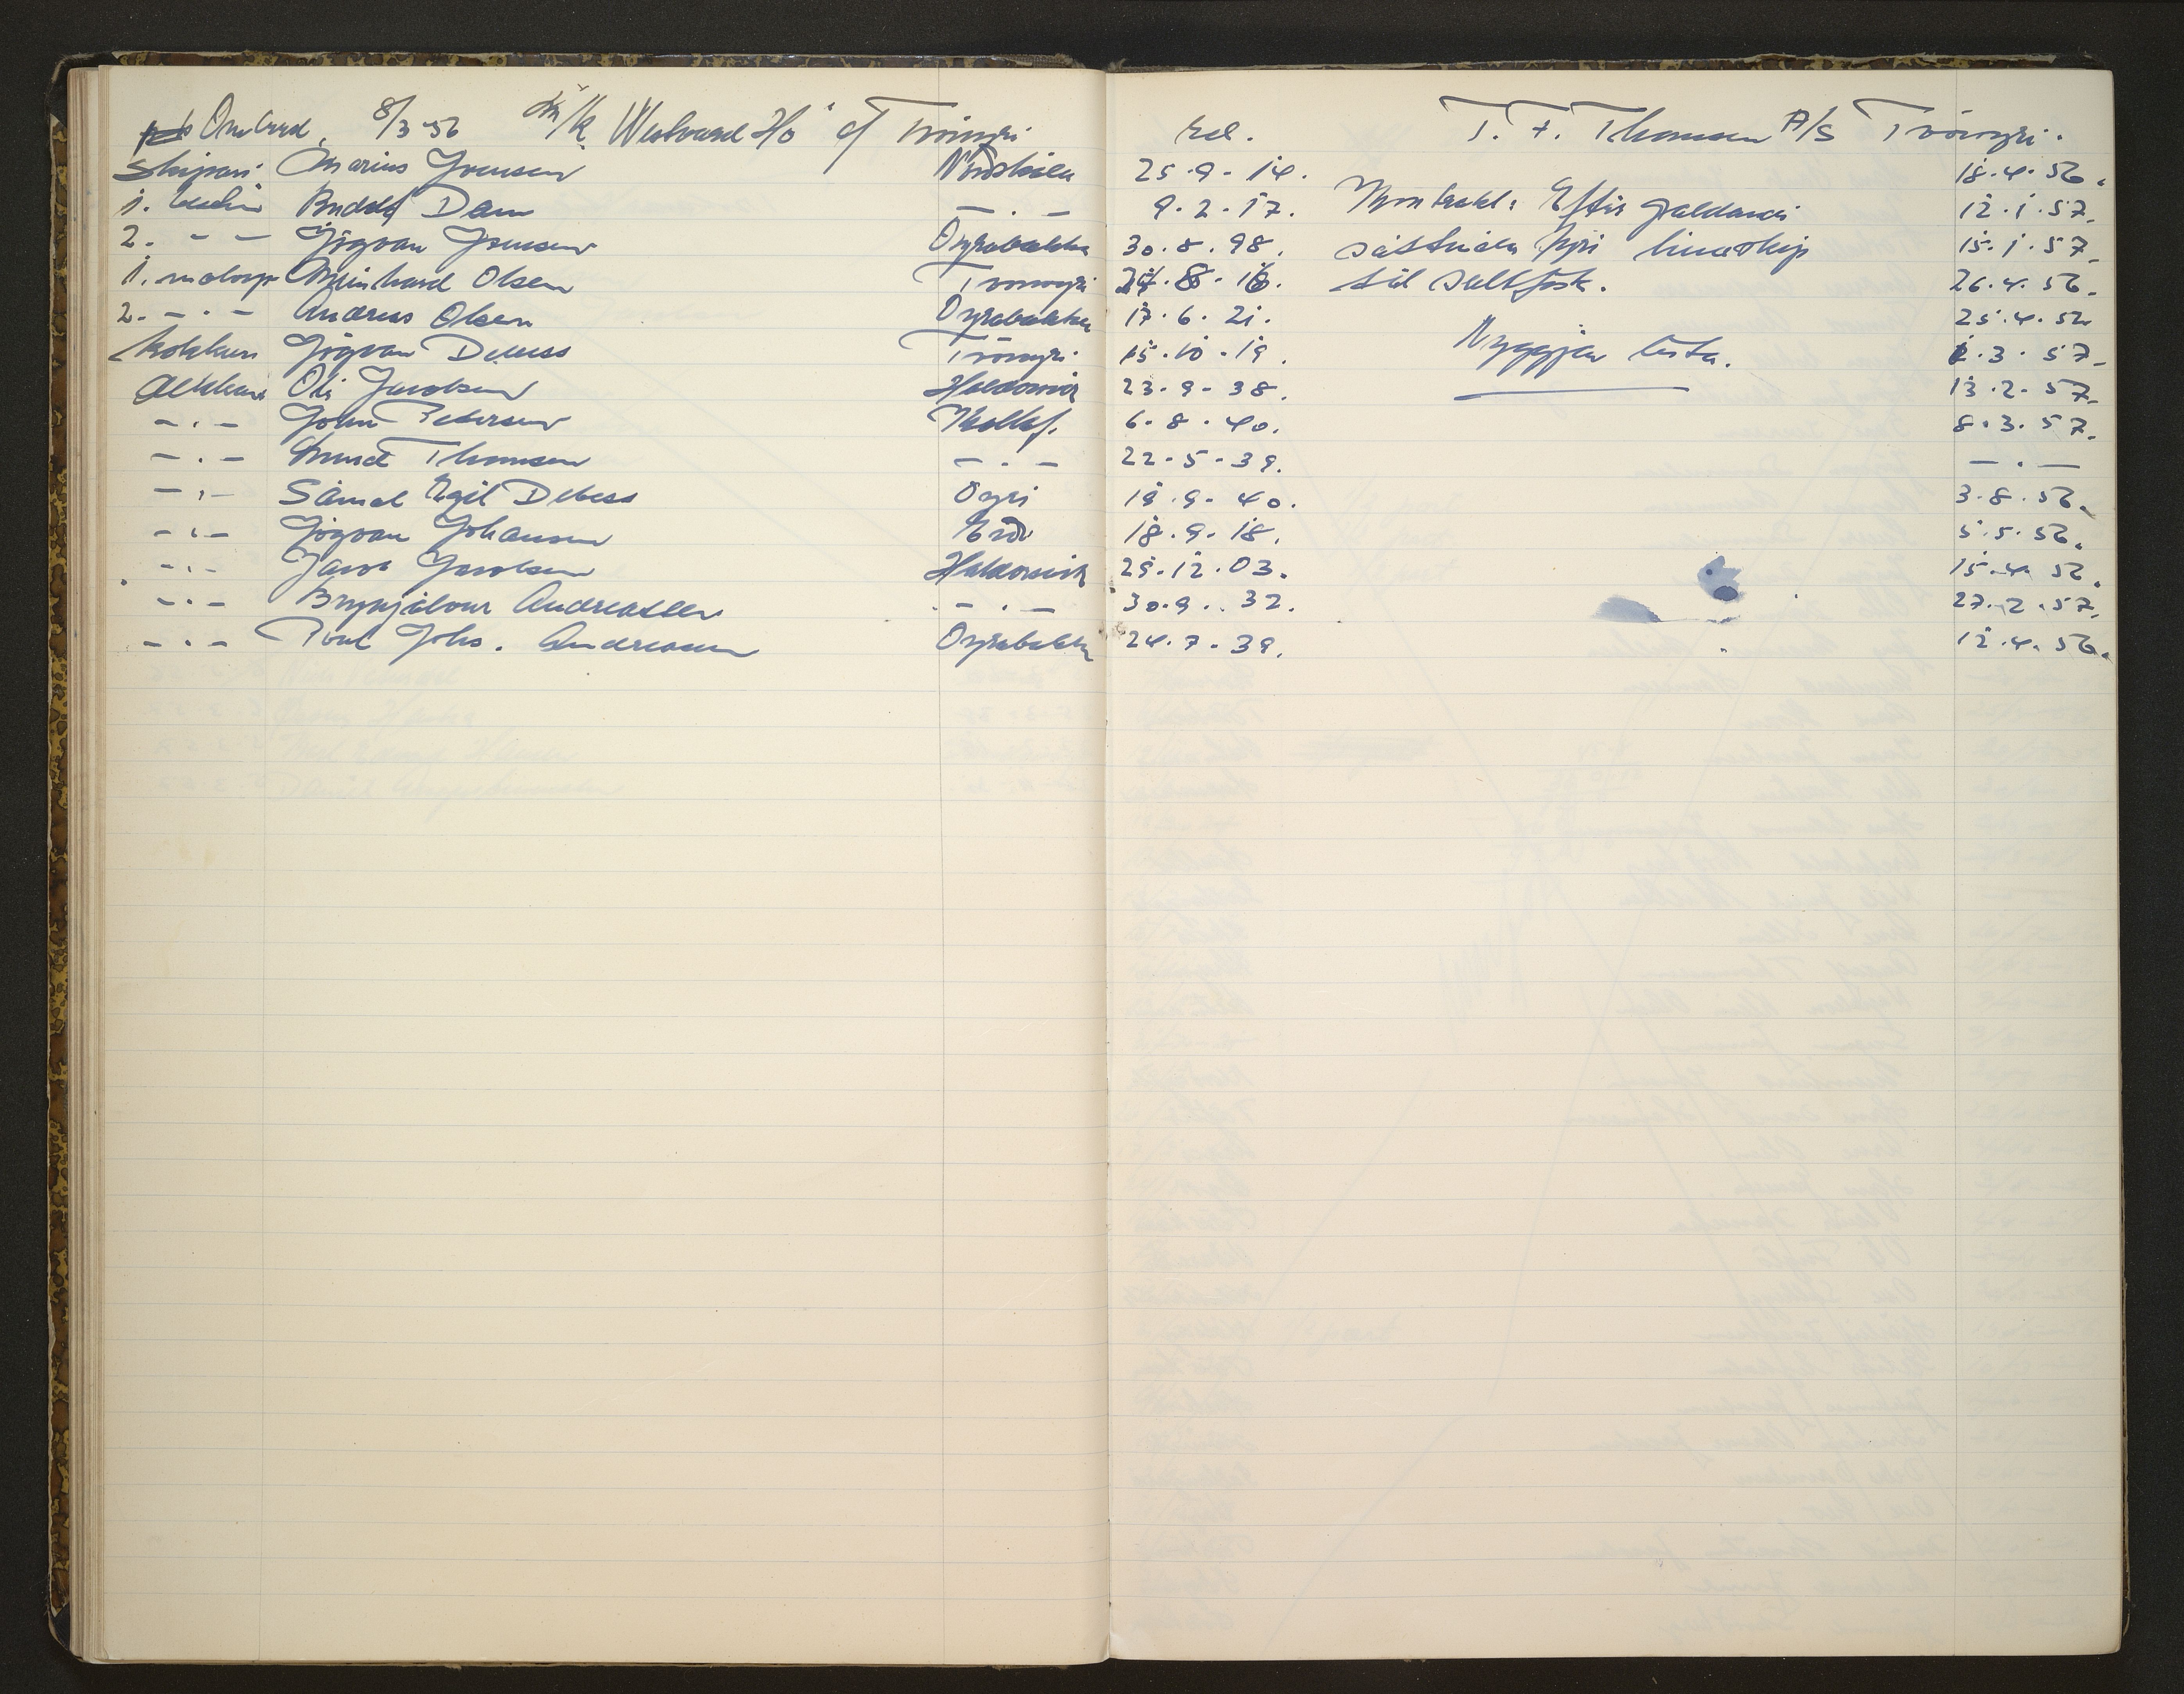 Ombord, 8/3-56 "Westward Ho" of Tvöroyri rel. T. F. Thomsen A/S Tvöroyri.
Skipari Marius Joensen Norðskála 25.9.14. 18.4.56.
1. Rudolf Dam - . - 9.2.17. Kontrakt: Eftir galdandi 12.1.57.
2. - - Jógvan Joensen Oyrabakka 30.8.98. sáttmála fyri línuskip 15.1.57.
1. motorp Meinhard Olsen Tvöroyri 24.8.16. til saltfisk. 26.4.56.
2. - . - Andreas Olsen Oyrabakka 17.6.21. 25.4.56
kokkur Jógvan Debess Tvöroyri 15.10.19. Hyggjan lista. 2.3.57.
dekkari Oli Jacobsen Haldorsvik 23.9.38. 13.2.57.
- . - John Petersen Kollf. 6.8.40. 8.3.57.
- . - Knud Thomsen - . - 22.5.39. - . -
- . - Sámal Egil Debess Oyri 19.9.40. 3.8.56.
- . - Jógvan Johansen Eiði 18.9.18. 5.5.56.
- . - Jacob Jacobsen Haldorsvik 29.12.03. 15.4.56.
- . - Brynjálvur Andreasen - . - 30.9.32. 27.2.57.
- . - Poul Johs. Andreasen Oyrabakka 24.7.39. 12.4.56.